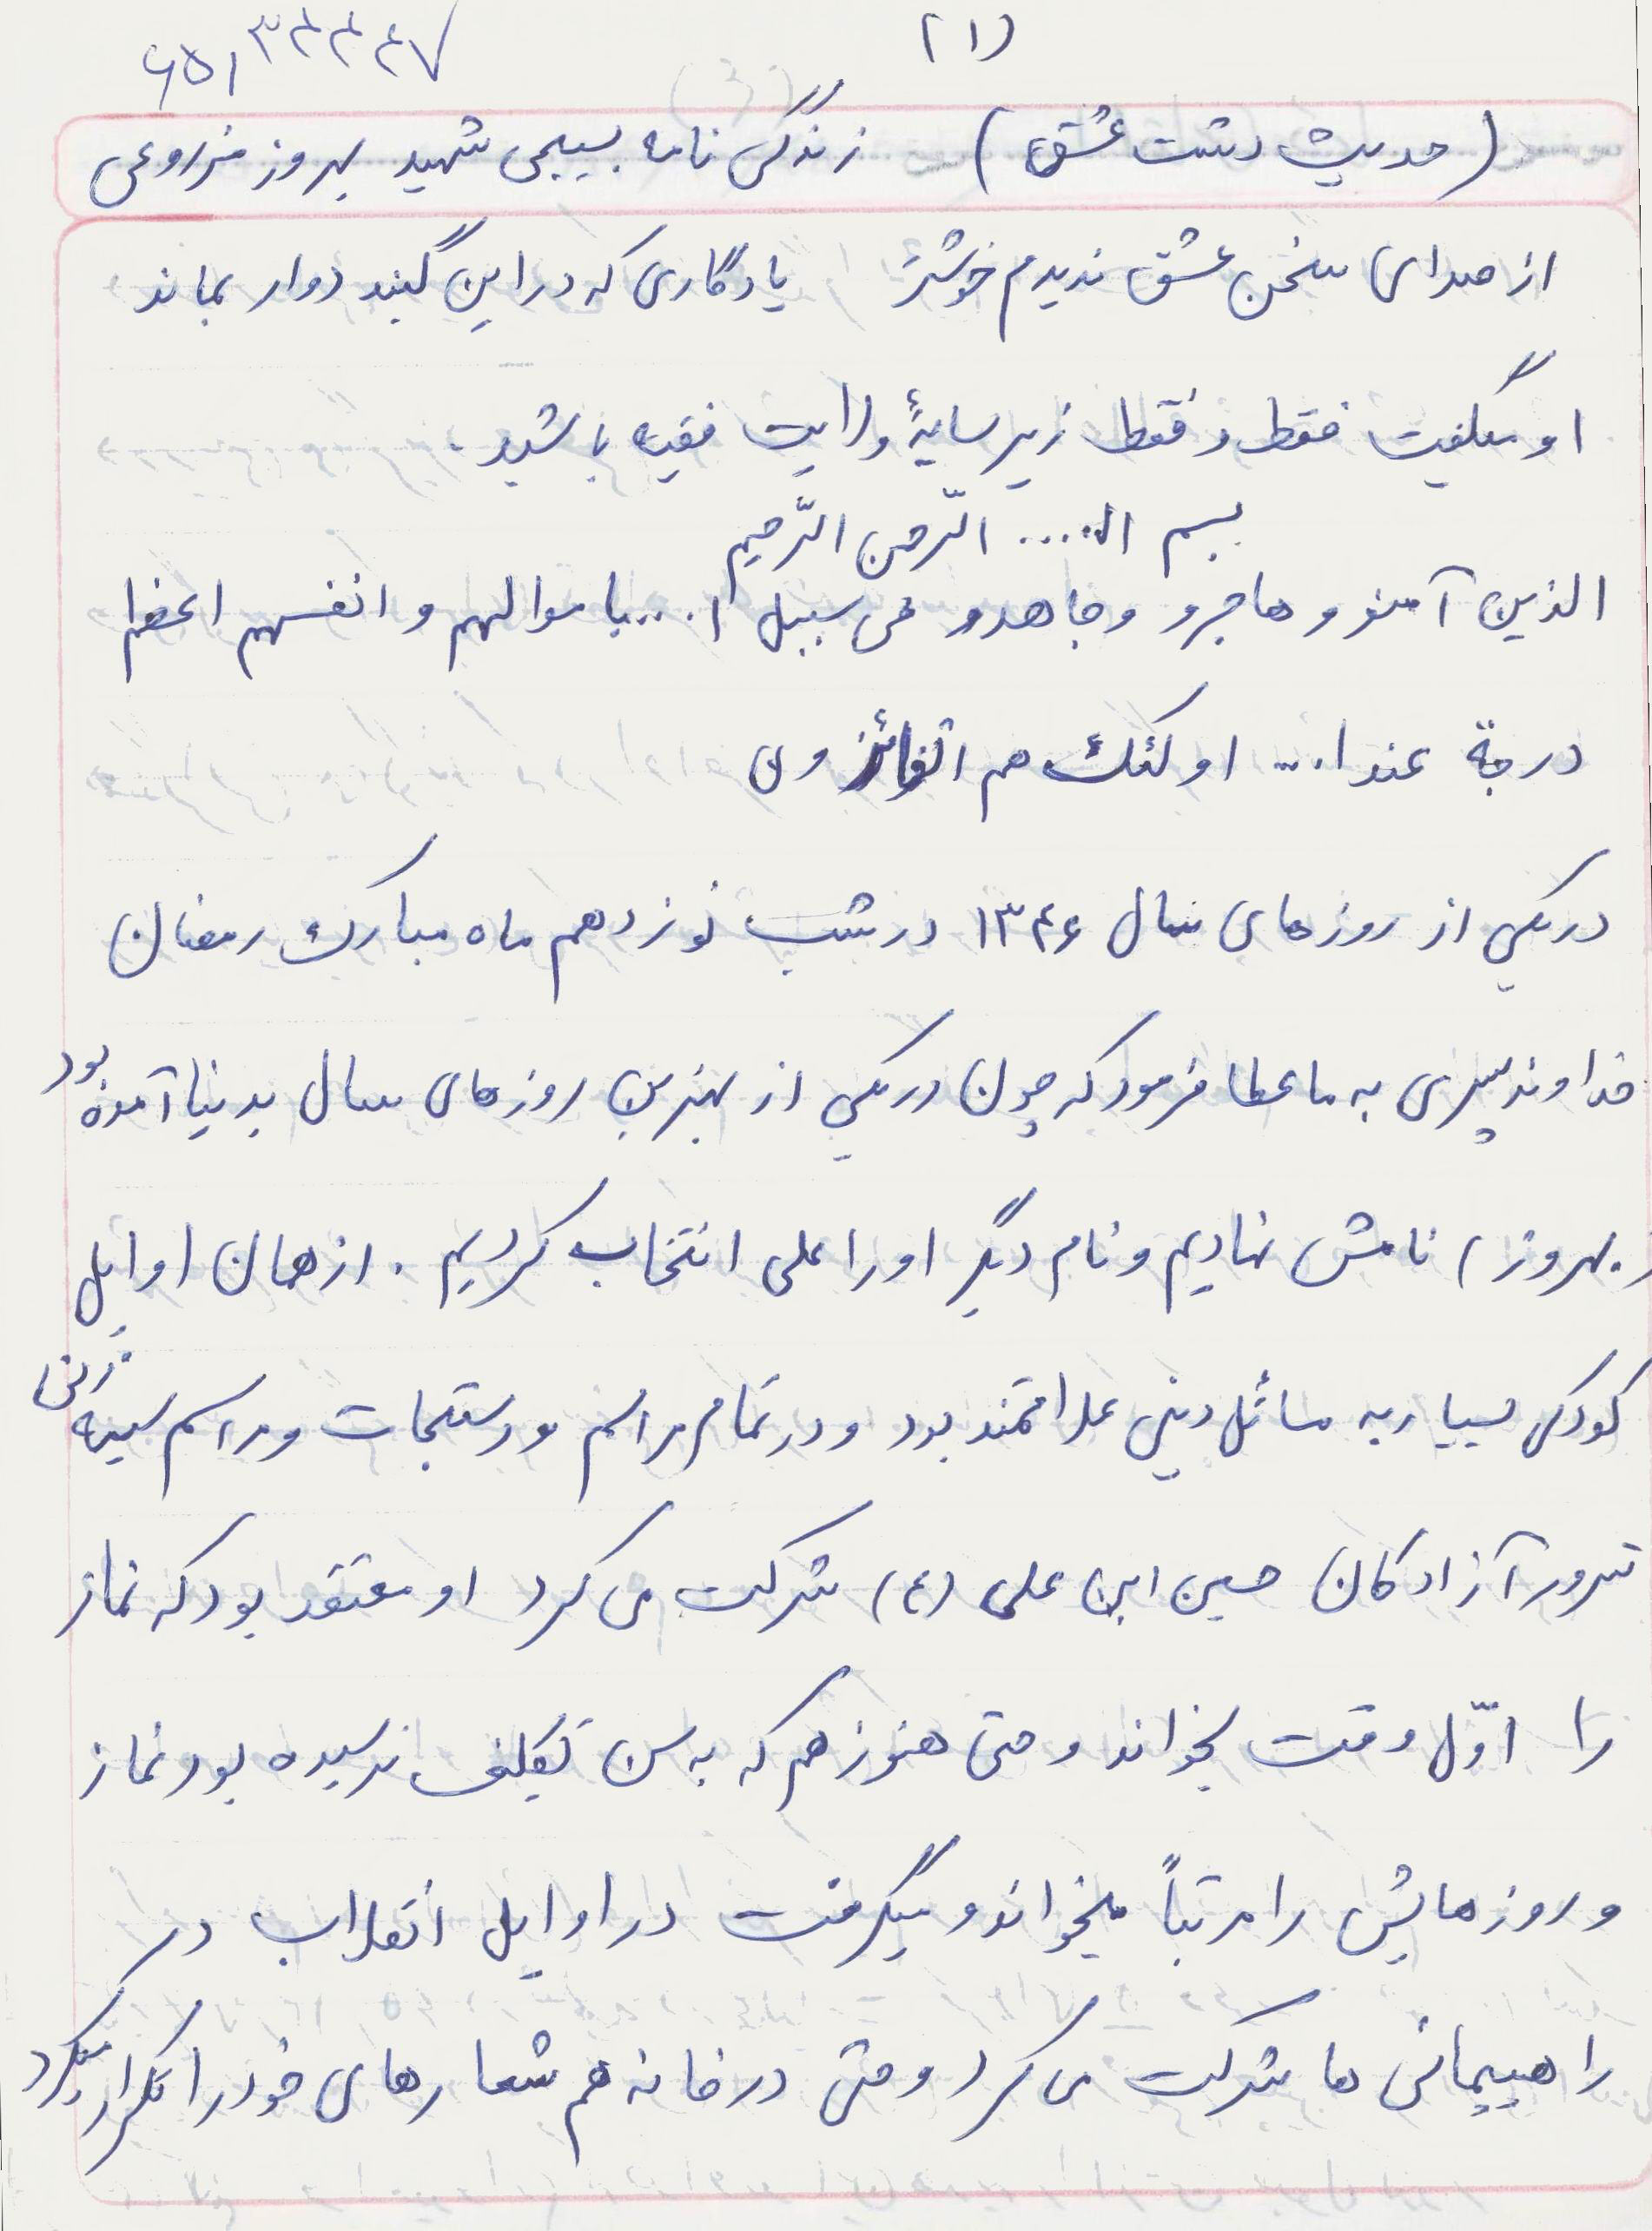 (۱)
(حدیث دشت عشق) زندگی نامه بسیجی شهید بهروز مزروعی
از صدای سخن عشق ندیدم خوشتر یادگاری که در این گنبد دوار بماند
او میگفت فقط و فقط زیر سایهٔ ولایت فقیه باشید.
بسم ال..... الرّحمن الرّحیم
الذین آمنو و هاجرو و جاهدو فی سبیل ا... باموالهم و انفسهم اعظم
درجة عند ا... اولئک هم الفائزون
در یکی از روزهای سال ۱۳۴۶ در شب نوزدهم ماه مبارک رمضان
خداوند پسری به ما عطا فرمود که چون در یکی از بهترین روزهای سال بدنیا آمده بود
(بهروز) نامش نهادیم و نام دیگر او را علی انتخاب کردیم. از همان اوایل
کودکی بسیار به مسائل دینی علاقمند بود و در تمام مراسم و دستجات و مراسم سینه زنی
سرور آزادگان حسین ابن علی (ع) شرکت می کرد او معتقد بود که نماز
را اوّل وقت بخواند و حتی هنوز هم که به سن تکلیف نرسیده بود نماز
و روزهایش را مرتباً میخواند و میگرفت در اوایل انقلاب در
راهپیمائی ها شرکت می کرد و حتی در خانه هم شعارهای خود را تکرار میکرد